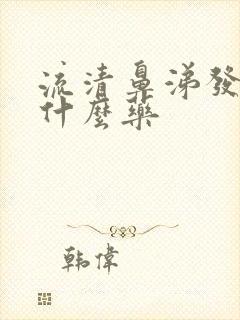 流清鼻涕發
什麼藥
韩偉